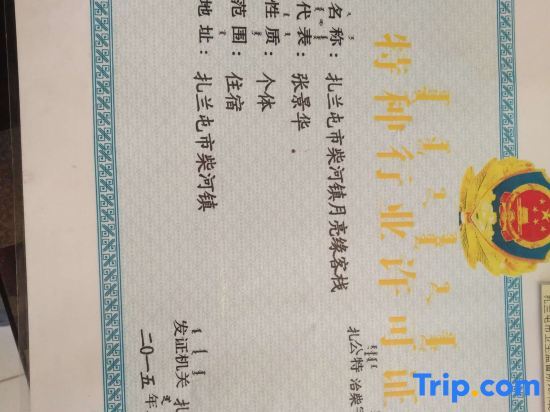 特种行业许可证
扎公特 治柴
名称：扎兰屯市柴河镇月亮缘客栈
代表：张景华
性质：个体
范围：住宿
地址：扎兰屯市柴河镇
发证机关 扎
二〇一五年
Trip.com